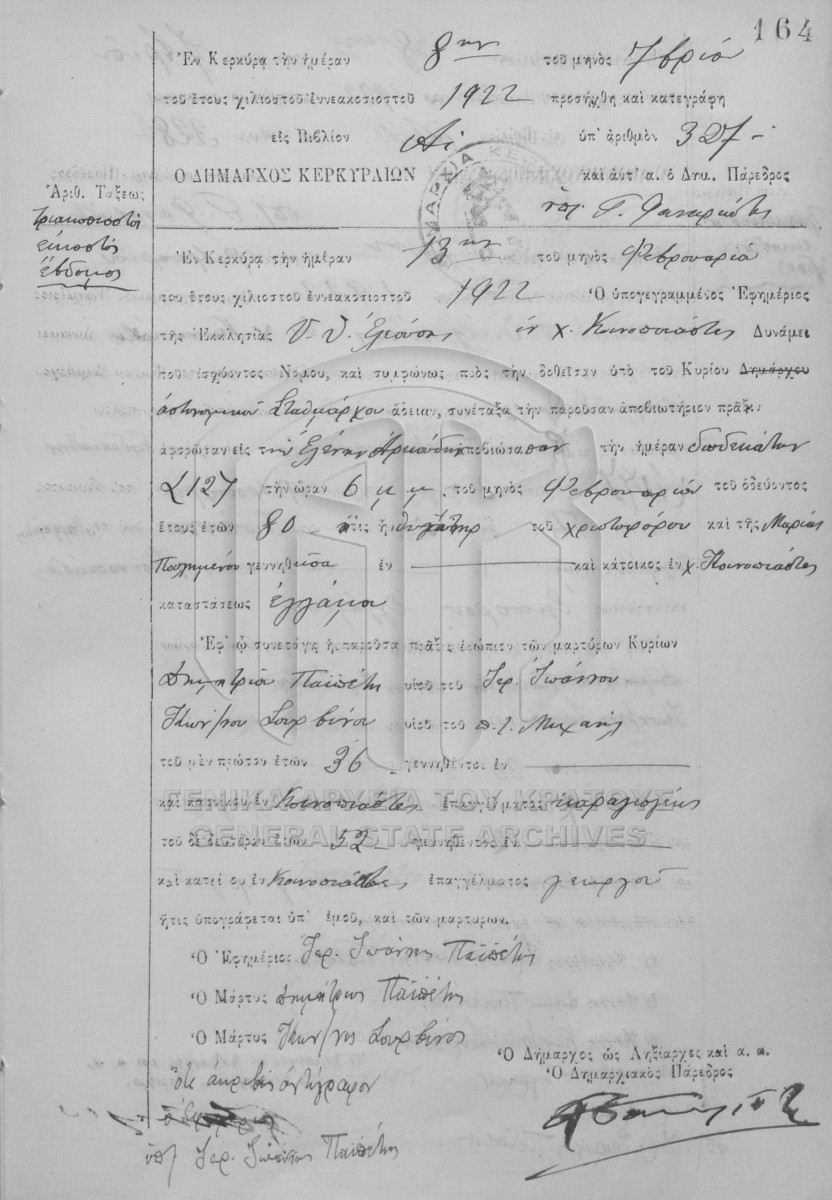 164
Ἐν Κερκύρᾳ τὴν ἡμέραν 8ην τοῦ μηνὸς 7βρίου
τοῦ ἔτους χιλιοστοῦ ἐννεακοσιοστοῦ 1922 προσήχθη καὶ κατεγράφη
εἰς Βιβλίον ὑπ' ἀριθμὸν 327
Ο ΔΗΜΑΡΧΟΣ ΚΕΡΚΥΡΑΙΩΝ καὶ ἀντ' α. ὁ Δημ. Πάρεδρος
Ἀριθ. Τάξεως
τριακοσιοστὸς
εἰκοστὸς
ἕβδομος
Ἐν Κερκύρᾳ τὴν ἡμέραν 13ην τοῦ μηνὸς Φεβρουαρίου
τοῦ ἔτους χιλιοστοῦ ἐννεακοσιοστοῦ 1922 Ὁ ὑπογεγραμμένος Ἐφημέριος
τῆς Ἐκκλησίας Υ. Θ. Ἐλεούσης ἐν χ. Κυνοπιάστες Δυνάμει
τοῦ ἰσχύοντος Νόμου, καὶ συμφώνως πρὸς τὴν δοθεῖσαν ὑπὸ τοῦ Κυρίου Δημάρχου
ἀστυνομικοῦ Σταθμάρχου ἄδειαν, συνέταξα τὴν παροῦσαν ἀποβιωτήριον πρᾶξιν
ἀφορῶσαν εἰς τὴν Ἑλένην ἀποβιώσασαν τὴν ἡμέραν δωδεκάτην
12 τὴν ὥραν 6 μ μ. τοῦ μηνὸς Φεβρουαρίου τοῦ ὁδεύοντος
ἔτους ἐτῶν 80 ἥτις ἡ θυγάτηρ τοῦ Χριστοφόρου καὶ τῆς Μαρίας
γεννηθεῖσα ἐν καὶ κάτοικος ἐν χ. Κυνοπιάστες
καταστάσεως ἔγγαμος
Ἐφ' ᾧ συνετάγη ἡ παροῦσα πρᾶξις ἐνώπιον τῶν μαρτύρων Κυρίων
Δημητρίου Παϊπέτη υἱοῦ τοῦ Ἱερ. Ἰωάννου
Κων/νου Σουρβίνου υἱοῦ τοῦ π. Μιχαήλ
τοῦ μὲν πρώτου ἐτῶν 36 γεννηθέντος ἐν
καὶ κατοίκου ἐν Κυνοπιάστες ἐπαγγέλματος καραγωγέως
ΓΕΝΙΚΑ ΑΡΧΕΙΑ ΤΟΥ ΚΡΑΤΟΥΣ
GENERAL STATE ARCHIVES
τοῦ δὲ δευτέρου ἐτῶν 52 γεννηθέντος ἐν
καὶ κατοίκου ἐν Κυνοπιάστες ἐπαγγέλματος γεωργοῦ
ἥτις ὑπογράφεται ὑπ' ἐμοῦ, καὶ τῶν μαρτύρων.
Ὁ Ἐφημέριος Ἱερ. Ἰωάννης Παϊπέτης
Ὁ Μάρτυς Δημήτριος Παϊπέτης
Ὁ Μάρτυς Κων/νος Σουρβίνος
Ὁ Δήμαρχος ὡς Ληξίαρχος καὶ α. α.
Ὁ Δημαρχιακὸς Πάρεδρος
ὅτι ἀκριβὲς ἀντίγραφον
ὑπ/ Ἱερ. Ἰωάννης Παϊπέτης